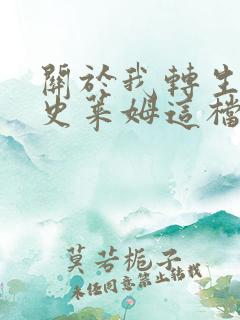 關於我轉生
史萊姆這檔
莫若梔子
未经同意禁止转载